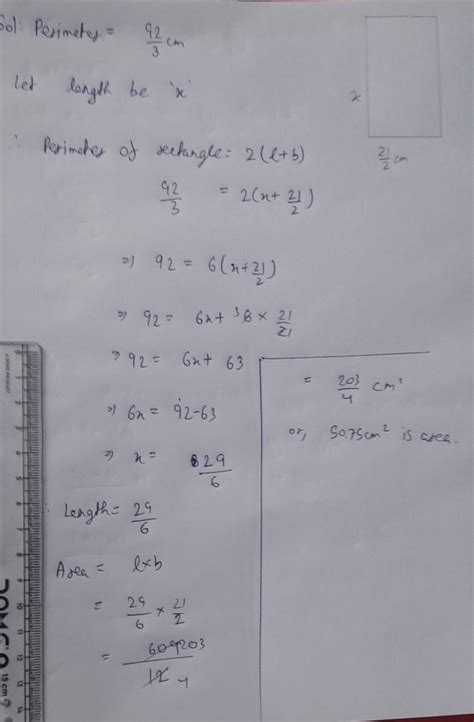 Sol: Perimeter = 92/3 cm
Let length be 'x'
x
21/2 cm
∴ Perimeter of rectangle: 2(l+b)
92/3 = 2(x+ 21/2)
⇒ 92 = 6(x+21/2)
⇒ 92 = 6x+ 3 6 × 21/2
⇒ 92 = 6x+ 63
⇒ 6x = 92-63
⇒ x = 29/6
∴ Length = 29/6
Area = l×b
= 29/6 × 21/2
= 609 203/12 4
= 203/4 cm²
or, 50.75cm² is area.
15 cm